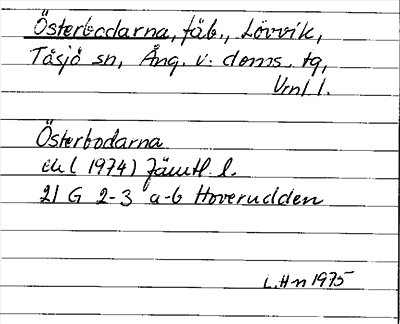 Österbodarna, fäb., Lövvik,
Tåsjö sn, Ång. v. doms. tg,
Vrnl l.
Österbodarna
ek ( 1974) Jämtl. l.
21 G 2-3 a-b Hoverudden
L.Hn 1975